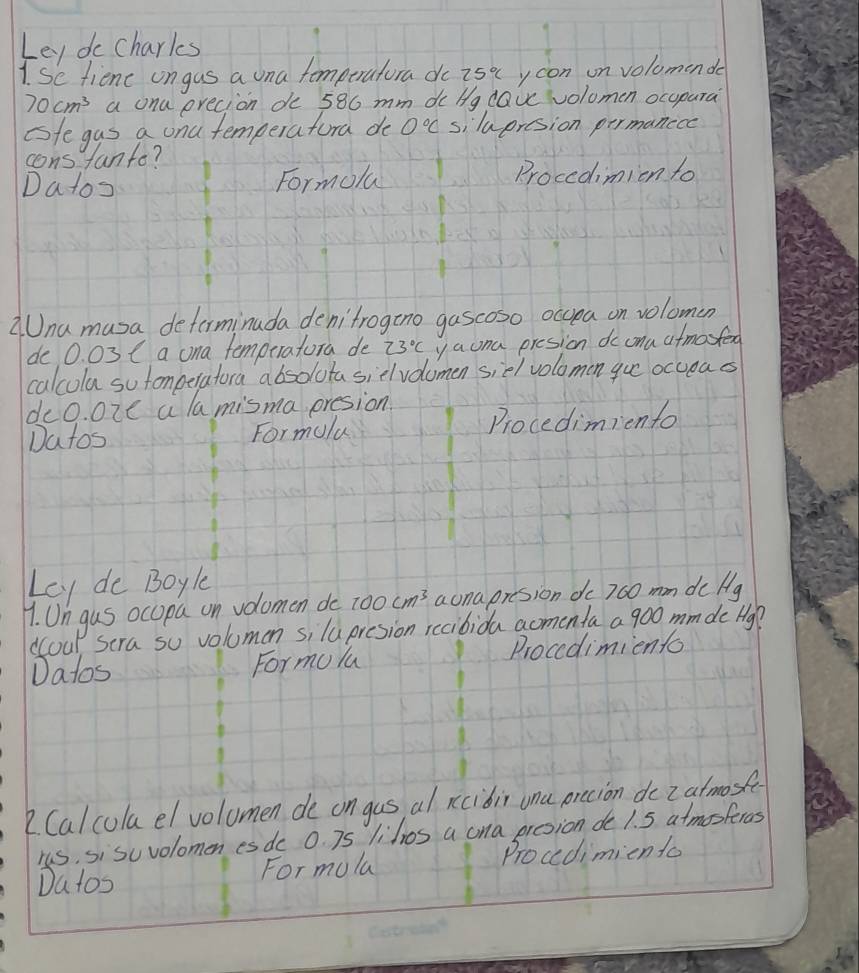 Ley de Charles
1. Se tiene un gas a una temperatura de 25°c y con un volumen de
70 cm³ a una preción de 586 mm de Hg ¿Que volumen ocupara
este gas a una temperatura de 0°c si la presion permanece
constante?
Datos Formula Procedimiento
2. Una masa determinada de nitrogeno gascoso ocupa un volumen
de 0.03 l a una temperatura de 23°c y a una presion de una atmosfera
calcula su temperatura absoluta si el volumen si el volumen que ocupa es
de 0.02 l a la misma presion.
Datos Formula Procedimiento
Ley de Boyle
1. Un gas ocupa un volumen de 200 cm³ a una presion de 760 mm de Hg
¿Cual sera su volumen si la presion recibida aumenta a 900 mm de Hg?
Datos Formula Procedimiento
2. Calcula el volumen de un gas al recibir una preción de 2 atmosfe-
ras. si su volumen es de 0.75 litros a una presion de 1.5 atmosferas
Datos Formula Procedimiento